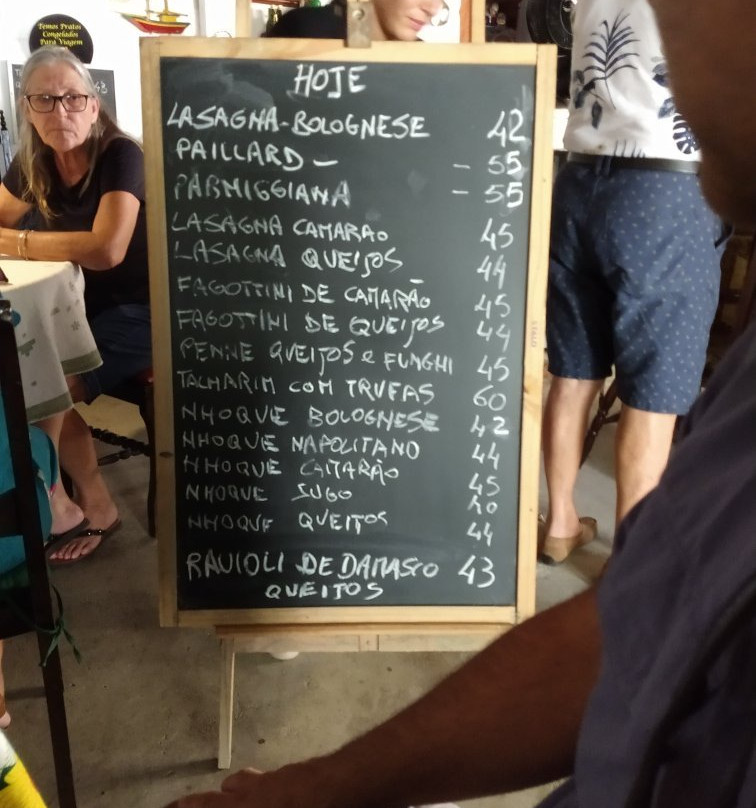 Temos Pratos
Congelados
Para Viagem
HOJE
LASAGNA-BOLOGNESE 42
PAILLARD - - 55
PARMIGGIANA - 55
LASAGNA CAMARAO 45
LASAGNA QUEIJOS 44
FAGOTTINI DE CAMARÃO 45
FAGOTTINI DE QUEIJOS 44
PENNE QUEIJOS e FUNGHI 45
TALHARIM COM TRUFAS 60
NHOQUE BOLOGNESE 42
NHOQUE NAPOLITANO 44
NHOQUE CAMARÃO 45
NHOQUE SUGO 40
NHOQUE QUEIJOS 44
RAVIOLI DE DAMASCO 43
QUEIJOS